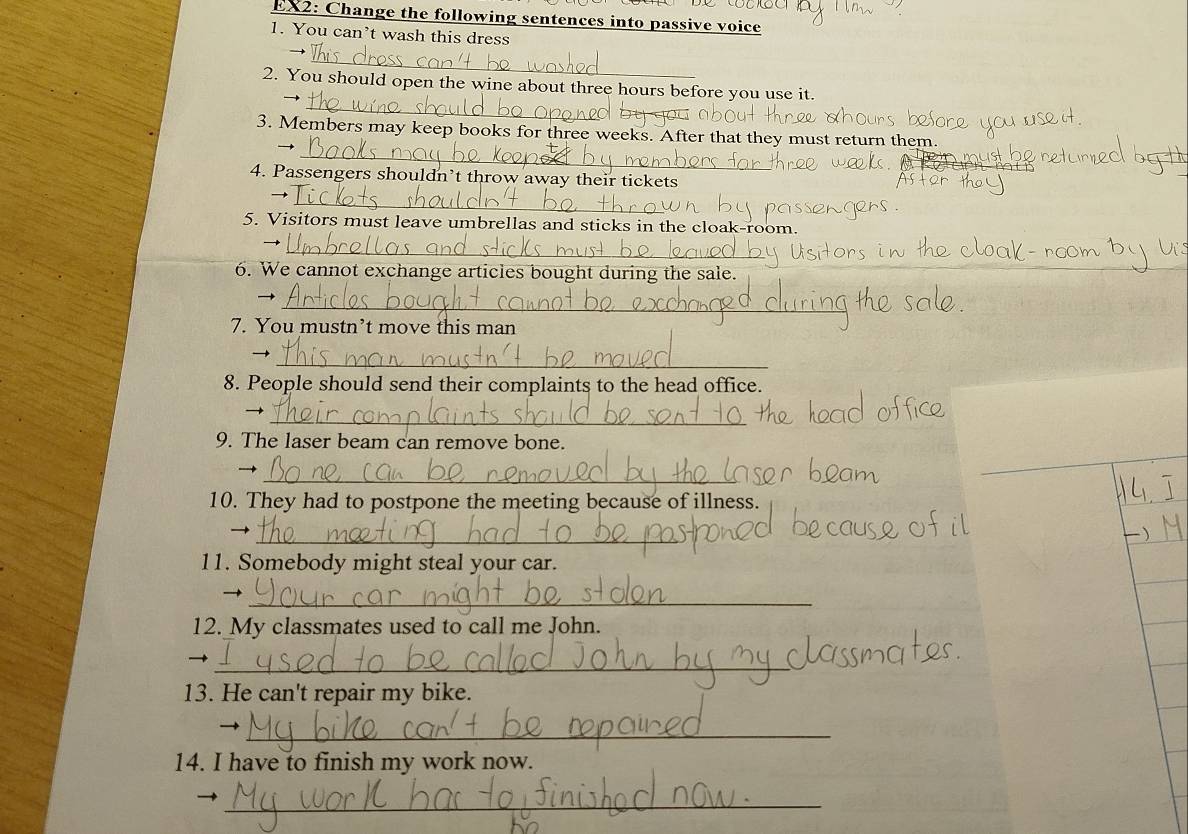 be locked by
EX2: Change the following sentences into passive voice
1. You can't wash this dress
→ This dress can't be washed
2. You should open the wine about three hours before you use it.
→ the wine should be opened by you about three hours before you use it.
3. Members may keep books for three weeks. After that they must return them.
→ Books may be keept by members for three weeks. must be returned by
After they
4. Passengers shouldn't throw away their tickets
→ Tickets shouldn't be thrown by passengers.
5. Visitors must leave umbrellas and sticks in the cloak-room.
→ Umbrellas and sticks must be leaved by Visitors in the cloak-room by Vis
6. We cannot exchange articles bought during the sale.
→ Articles bought cannot be exchanged during the sale.
7. You mustn't move this man
→ this man mustn't be moved
8. People should send their complaints to the head office.
→ their complaints should be sent to the head office
9. The laser beam can remove bone.
→ Bone can be removed by the laser beam
10. They had to postpone the meeting because of illness.
→ the meeting had to be postponed because of il
11. Somebody might steal your car.
→ your car might be stolen
12. My classmates used to call me John.
→ I used to be called John by my classmates.
13. He can't repair my bike.
→ My bike can't be repaired
14. I have to finish my work now.
→ My work has to finished now.
be
14. I
→ M